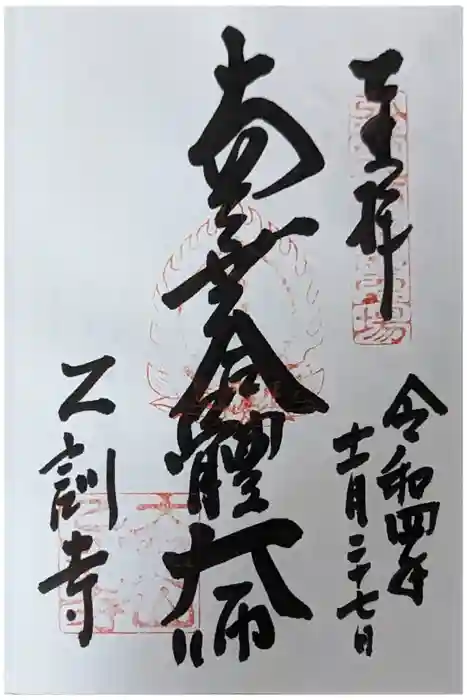 奉拝
令和四年
十一月二十七日
南無合體大師
乙訓寺